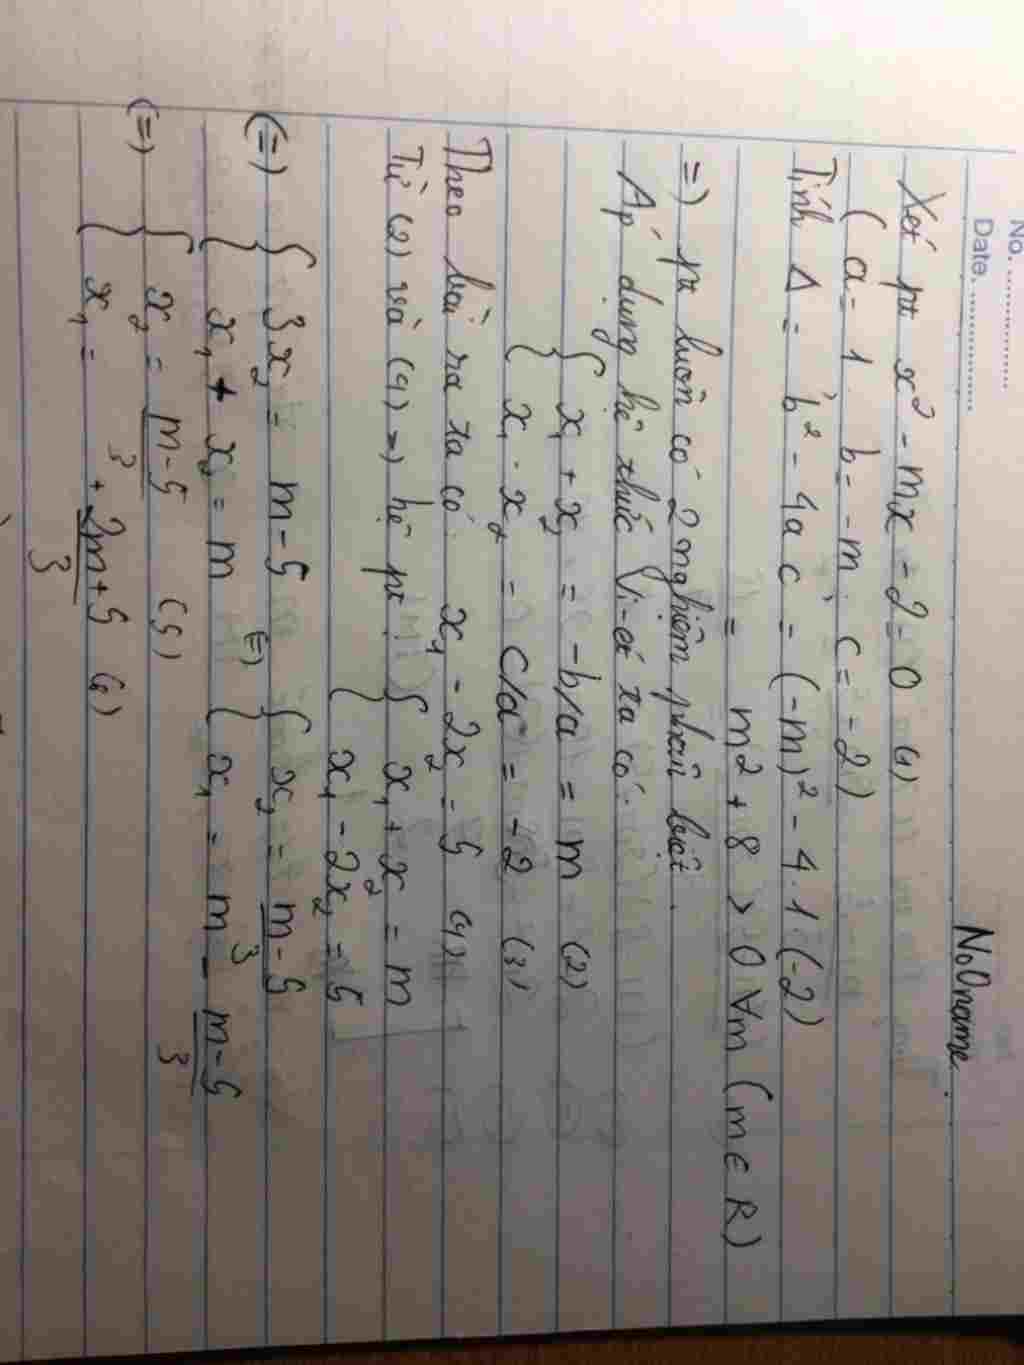 No. ....................
Date. ....................
NoOname.
Xét pt x² - mx - 2 = 0 (1)
( a = 1 ; b = -m ; c = -2 )
Tính Δ = b² - 4ac = (-m)² - 4.1(-2)
= m² + 8 > 0 ∀m (m ∈ R)
=) pt luôn có 2 nghiệm phân biệt.
Áp dụng hệ thức Vi-et ta có:
{ x₁ + x₂ = -b/a = m (2)
{ x₁ . x₂ = c/a = -2 (3)
Theo bài ra ta có x₁ - 2x₂ = 5 (4)
Từ (2) và (4) => hệ pt { x₁ + x₂ = m
{ x₁ - 2x₂ = 5
(=) { 3x₂ = m - 5 (=) { x₂ = m-5/3
{ x₁ + x₂ = m { x₁ = m - m-5/3
(=) { x₂ = m-5/3 (5)
{ x₁ = + 2m+5/3 (6)